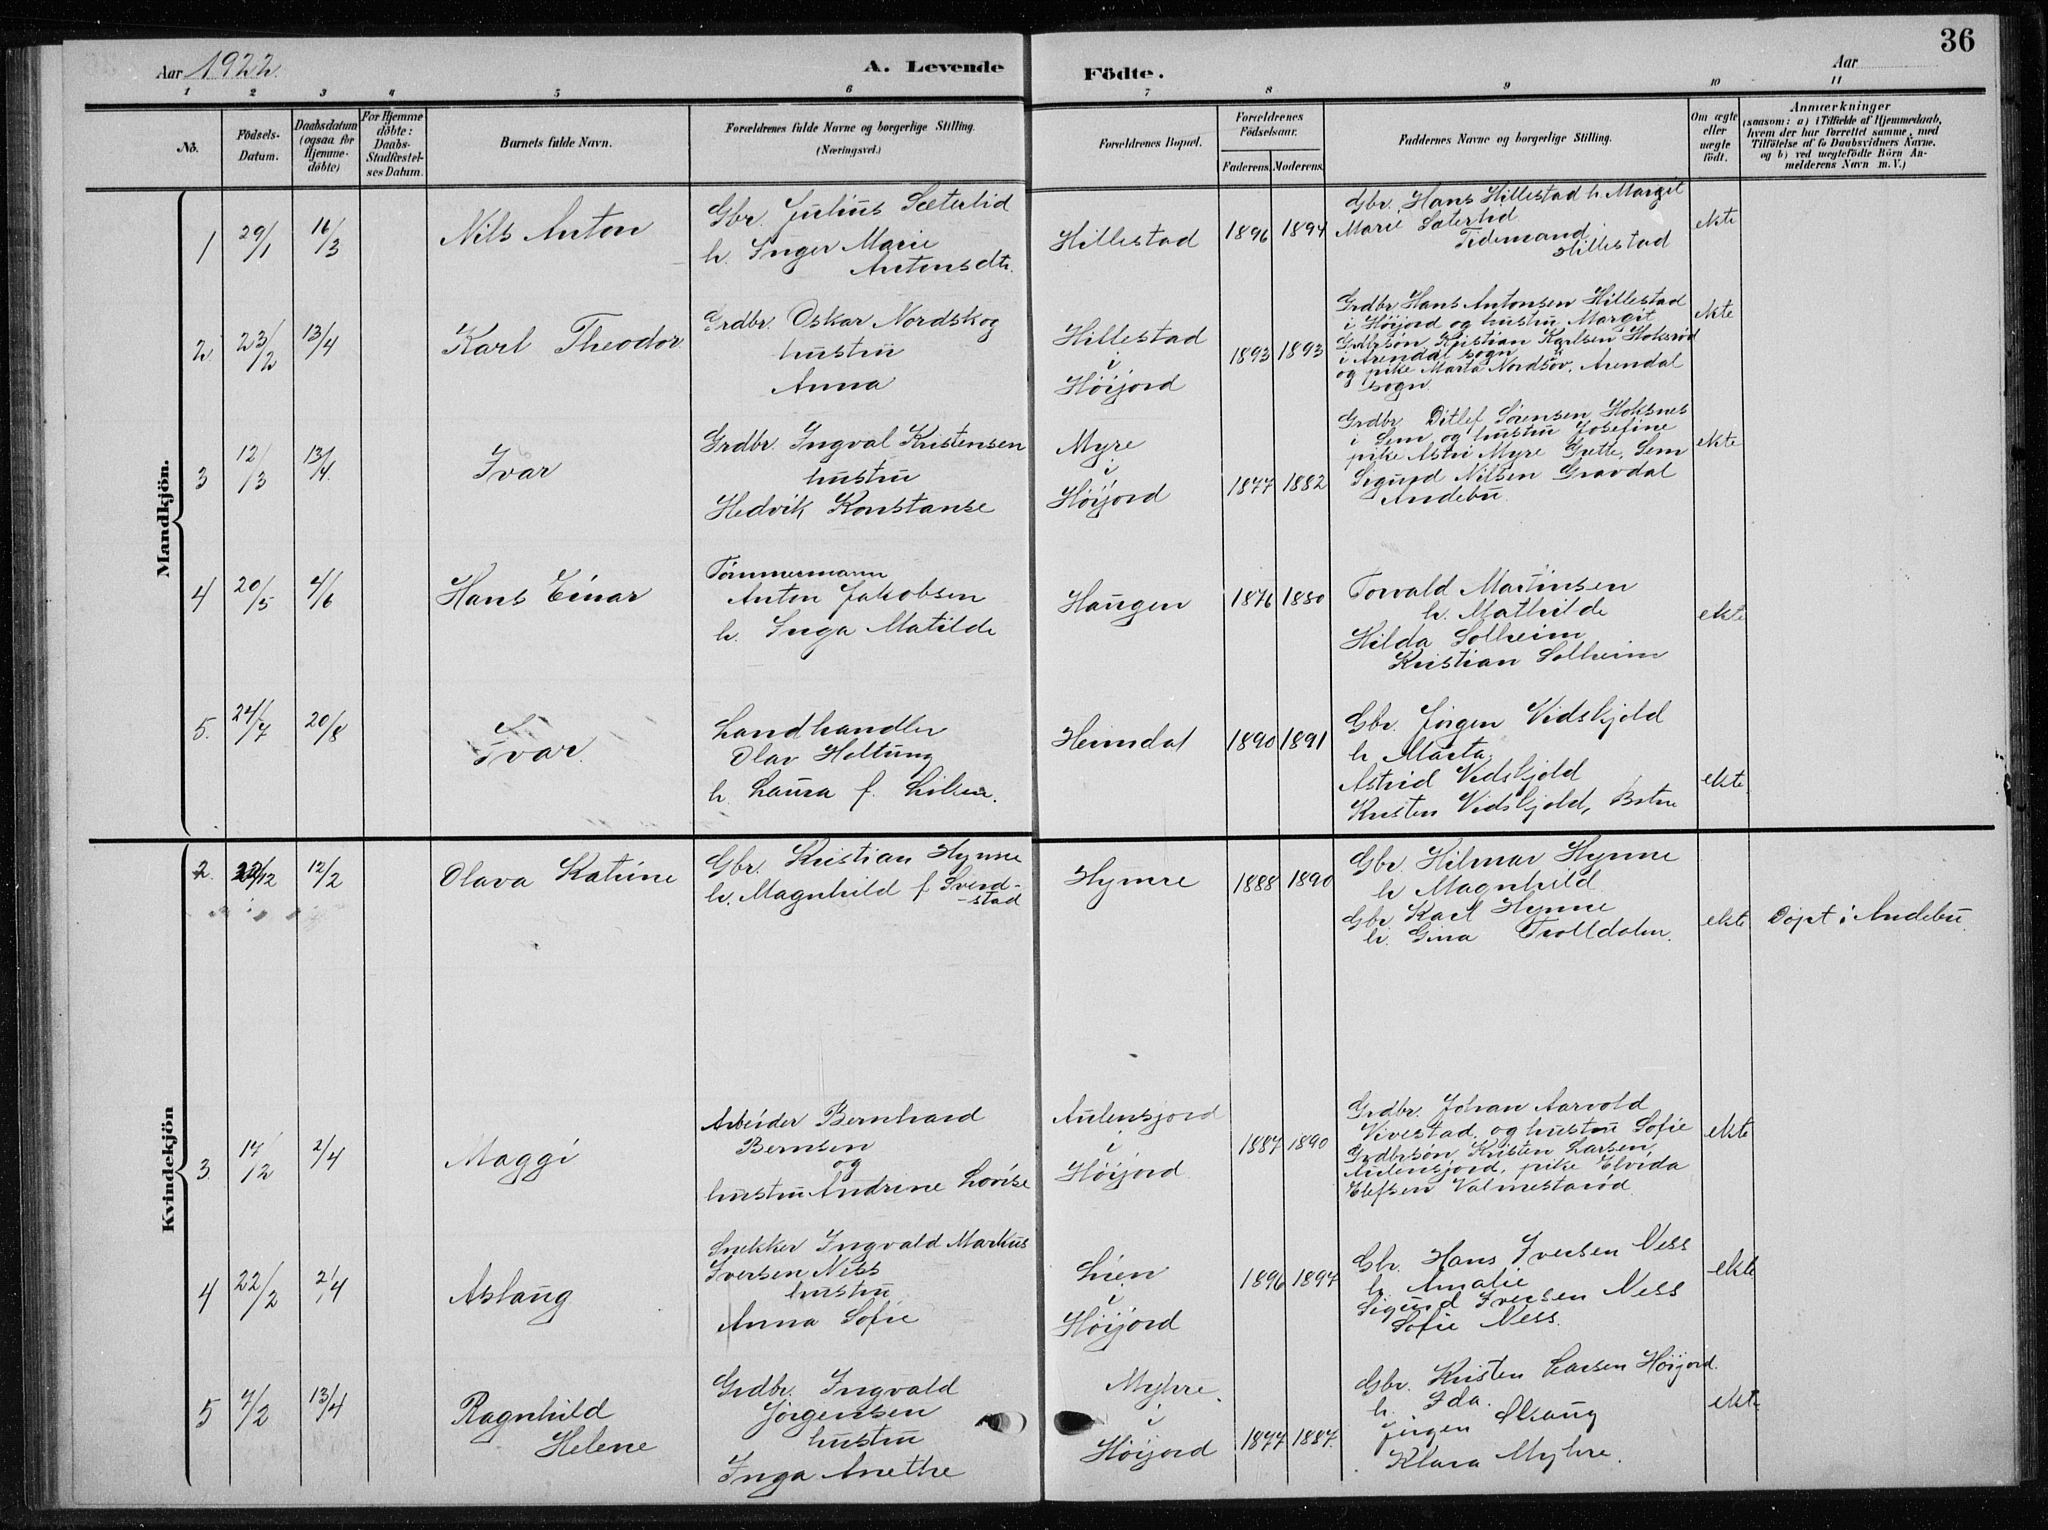 36
Aar 1922.
A. Levende
Födte.
Aar
1 2 3 4 5 6 7 8 9 10 11
No.
Födsels-Datum.
Daabsdatum (ogsaa for Hjemme-döbte)
For Hjemme döbte: Daabs-Stadfæstel-ses Datum.
Barnets fulde Navn.
Forældrenes fulde Navne og borgerlige Stilling.
(Næringsvei.)
Forældrenes Bopæl.
Forældrenes Födselsaar.
Faderens. Moderens.
Faddernes Navne og borgerlige Stilling.
Om ægte eller uægte födt.
Anmærkninger
(saasom: a) i Tilfælde af Hjemmedaab,
hvem der har forrettet samme, med
Tilföielse af to Daabsvidners Navne.
og b) ved uægtefödte Börn An-
melderens Navn m. V.)
Mandkjön.
1 29/1 16/3 Nils Anton
Gbr. Julius Sæterlid
h. Inger Marie
Antonsdtr.
Hillestad 1896 1894
Gbr. Hans Hillestad h. Margit
Marie Sæterlid
Tidemand
Hillestad
ekte
2 23/2 13/4 Karl Theodor
Grdbr. Oskar Nordskog
hustru
Anna
Hillestad
i
Høijord
1893 1893
Grdbr. Hans Antonsen Hillestad
i Høijord og hustru Margit
Grdbrsön Kristian Karlsen Hoksrød
i Arendal sogn
og pike Marta Nordsöv, Arendal
sogn.
ekte
3 12/3 13/4 Ivar
Grdbr. Ingval Kristensen
hustru
Hedvik Konstanse
Myre
i
Høijord
1877 1882
Grdbr Ditlef Sørensen Hoksnes
i Sem og hustru Josefine
pike Astri Myre Grette, Sem
Sigurd Nilsen Gravdal
Andebu.
ekte
4 20/5 4/6 Hans Einar
Tømmermann
Anton Jakobsen
h. Inga Matilde
Haugen 1876 1880
Torvald Martinsen
h. Mathilde
Hilda Solheim
Kristian Solheim
ekte
5. 24/7 20/8 Ivar.
Landhandler
Olav Holtung
h. Laura f.
Heimdal 1890 1891
Gbr. Jørgen Vidskjold
h. Marta
Astrid Vidskjold
Kristen Vidskjold, Botne
ekte
Kvindekjön
2. 12/2 Olava Katrine
Gbr. Kristian Hymne
h. Magnhild f. Svend-
-stad
Hymre 1888 1890
Gbr. Hilmar Hynne
h Magnhild
Gbr Karl Hynne
h. Gina Trolldalen.
ekte Døpt i Andebu.
3. 14/2 2/4 Maggi
Arbeider Bernhard
Bernsen
og
hustru Andrine Lovise
Aulensjord
i
Høijord
1887 1890
Grdbr. Johan Aarvold
Vivestad, og hustru Sofie
Grdbrsøn Kristen Larsen,
Aulensjord, pike Elvida
Elefsen Valmestarød.
ekte
4 22/2 2/4 Aslaug
Snekker Ingvald Markus
Iversen Ness
hustru
Anna Sofie
Lien
i
Høijord
1896 1897
Gbr. Hans Iversen Ness
h Amalie
Sigurd Iversen Ness
Sofie Ness.
ekte
5 4/2 13/4 Ragnhild
Helene
Grdbr. Ingvald
Jørgensen
hustru
Inga Anethe
Myhre
i
Høijord
1877 1887.
Gbr. Kristen Larsen Høijord.
h. Ida.
Jørgen Olsaug
Klara Myhre.
ekte